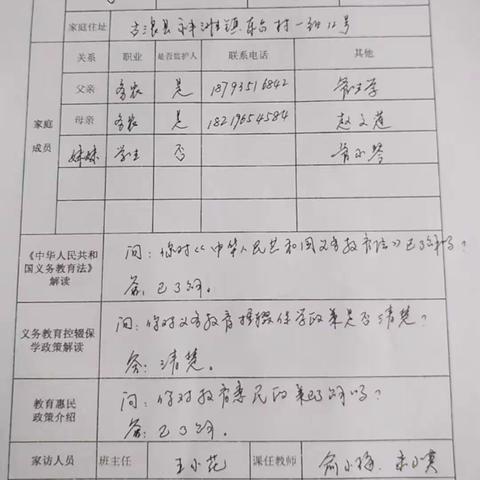 家庭住址 古浪县 镇 村一组12号
关系 职业 是否监护人 联系电话 其他
父亲 务农 是 18793516842
家庭成员 母亲 务农 是 18219654584 赵文莲
妹妹 学生 否
《中华人民共和国义务教育法》解读 问：你对《中华人民共和国义务教育法》已了解吗？
答：已了解。
义务教育控辍保学政策解读 问：你对义务教育控辍保学政策是否清楚？
答：清楚。
教育惠民政策介绍 问：你对教育惠民政策了解吗？
答：已了解。
家访人员 班主任 王小花 课任教师 俞小梅